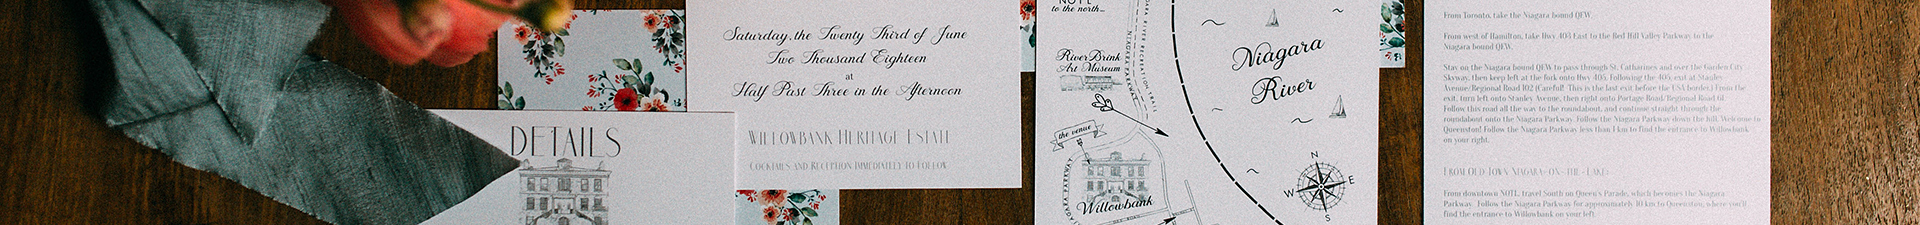 DETAILS
Saturday, the Twenty Third of June
Two Thousand Eighteen
at
Half Past Three in the Afternoon
WILLOWBANK HERITAGE ESTATE
COCKTAILS AND RECEPTION IMMEDIATELY TO FOLLOW
NOTL
to the north...
RiverBrink
Art Museum
NIAGARA PARKWAY
NIAGARA RIVER RECREATION TRAIL
the venue
Willowbank
NIAGARA PARKWAY
Niagara
River
N
W E
S
From Toronto, take the Niagara bound QEW.
From west of Hamilton, take Hwy 403 East to the Red Hill Valley Parkway to the
Niagara bound QEW.
Stay on the Niagara bound QEW to pass through St. Catharines and over the Garden City
Skyway, then keep left at the fork onto Hwy 405. Following the 405, exit at Stanley
Avenue/Regional Road 102 (Careful! This is the last exit before the USA border.) From the
exit, turn left onto Stanley Avenue, then right onto Portage Road/Regional Road 61.
Follow this road all the way to the roundabout, and continue straight through the
roundabout onto the Niagara Parkway. Follow the Niagara Parkway down the hill. Welcome to
Queenston! Follow the Niagara Parkway less than 1 km to find the entrance to Willowbank
on your right.
FROM OLD TOWN NIAGARA-ON-THE-LAKE:
From downtown NOTL, travel South on Queen's Parade, which becomes the Niagara
Parkway. Follow the Niagara Parkway for approximately 10 km to Queenston, where you'll
find the entrance to Willowbank on your left.